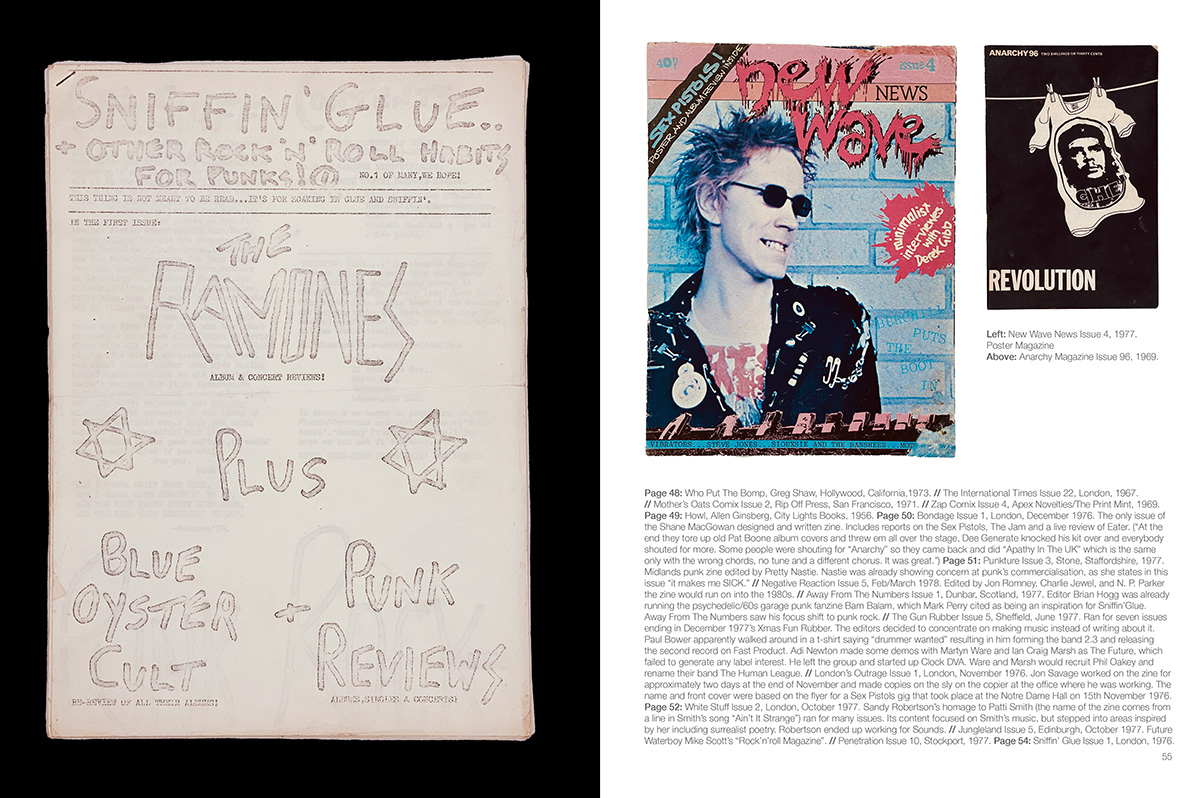 SNIFFIN' GLUE..
+ OTHER ROCK 'N' ROLL HABITS
FOR PUNKS!
NO.1 OF MANY, WE HOPE!
THIS THING IS NOT MEANT TO BE READ...IT'S FOR SOAKING IN GLUE AND SNIFFIN'.
IN THE FIRST ISSUE:
THE
RAMONES
ALBUM & CONCERT REVIEWS!
PLUS
BLUE
OYSTER
CULT
RE-REVIEW OF ALL THEIR ALBUMS!
+ PUNK
REVIEWS
ALBUMS, SINGLES & CONCERTS!
40p
SEX PISTOLS!
POSTER AND ALBUM REVIEW INSIDE
issue 4
new
NEWS
wave
minimalist
interviews
with
Derek Gibb
BURCHILL
PUTS
THE
BOOT
IN
VIBRATORS...STEVE JONES...SIOUXSIE AND THE BANSHEES...
ANARCHY 96 TWO SHILLINGS OR THIRTY CENTS
CHE
REVOLUTION
Left: New Wave News Issue 4, 1977.
Poster Magazine
Above: Anarchy Magazine Issue 96, 1969.
Page 48: Who Put The Bomp, Greg Shaw, Hollywood, California,1973. // The International Times Issue 22, London, 1967.
// Mother's Oats Comix Issue 2, Rip Off Press, San Francisco, 1971. // Zap Comix Issue 4, Apex Novelties/The Print Mint, 1969.
Page 49: Howl, Allen Ginsberg, City Lights Books, 1956. Page 50: Bondage Issue 1, London, December 1976. The only issue of
the Shane MacGowan designed and written zine. Includes reports on the Sex Pistols, The Jam and a live review of Eater. ("At the
end they tore up old Pat Boone album covers and threw em all over the stage, Dee Generate knocked his kit over and everybody
shouted for more. Some people were shouting for "Anarchy" so they came back and did "Apathy In The UK" which is the same
only with the wrong chords, no tune and a different chorus. It was great.") Page 51: Punkture Issue 3, Stone, Staffordshire, 1977.
Midlands punk zine edited by Pretty Nastie. Nastie was already showing concern at punk's commercialisation, as she states in this
issue "it makes me SICK." // Negative Reaction Issue 5, Feb/March 1978. Edited by Jon Romney, Charlie Jewel, and N. P. Parker
the zine would run on into the 1980s. // Away From The Numbers Issue 1, Dunbar, Scotland, 1977. Editor Brian Hogg was already
running the psychedelic/60s garage punk fanzine Bam Balam, which Mark Perry cited as being an inspiration for Sniffin'Glue.
Away From The Numbers saw his focus shift to punk rock. // The Gun Rubber Issue 5, Sheffield, June 1977. Ran for seven issues
ending in December 1977's Xmas Fun Rubber. The editors decided to concentrate on making music instead of writing about it.
Paul Bower apparently walked around in a t-shirt saying "drummer wanted" resulting in him forming the band 2.3 and releasing
the second record on Fast Product. Adi Newton made some demos with Martyn Ware and Ian Craig Marsh as The Future, which
failed to generate any label interest. He left the group and started up Clock DVA. Ware and Marsh would recruit Phil Oakey and
rename their band The Human League. // London's Outrage Issue 1, London, November 1976. Jon Savage worked on the zine for
approximately two days at the end of November and made copies on the sly on the copier at the office where he was working. The
name and front cover were based on the flyer for a Sex Pistols gig that took place at the Notre Dame Hall on 15th November 1976.
Page 52: White Stuff Issue 2, London, October 1977. Sandy Robertson's homage to Patti Smith (the name of the zine comes from
a line in Smith's song "Ain't It Strange") ran for many issues. Its content focused on Smith's music, but stepped into areas inspired
by her including surrealist poetry. Robertson ended up working for Sounds. // Jungleland Issue 5, Edinburgh, October 1977. Future
Waterboy Mike Scott's "Rock'n'roll Magazine". // Penetration Issue 10, Stockport, 1977. Page 54: Sniffin' Glue Issue 1, London, 1976.
55